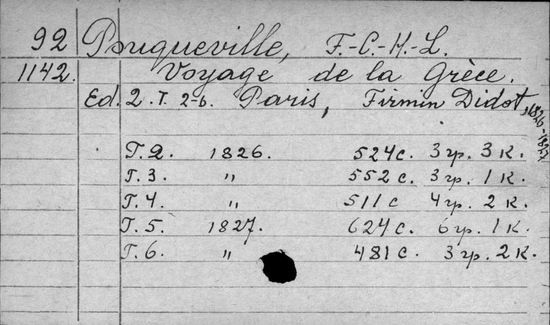 92 Pouqueville, F.-C.-H.-L.
1142. Voyage de la Grèce.
Ed. 2. T. 2-6. Paris, Firmin Didot, 1826-1827
T. 2. 1826. 524 с. 3 гр. 3 к.
T. 3. " 552 с. 3 гр. 1 к.
T. 4. " 511 с 4 гр. 2 к.
T. 5. 1827. 624 с. 6 гр. 1 к.
T. 6. " 481 с. 3 гр. 2 к.